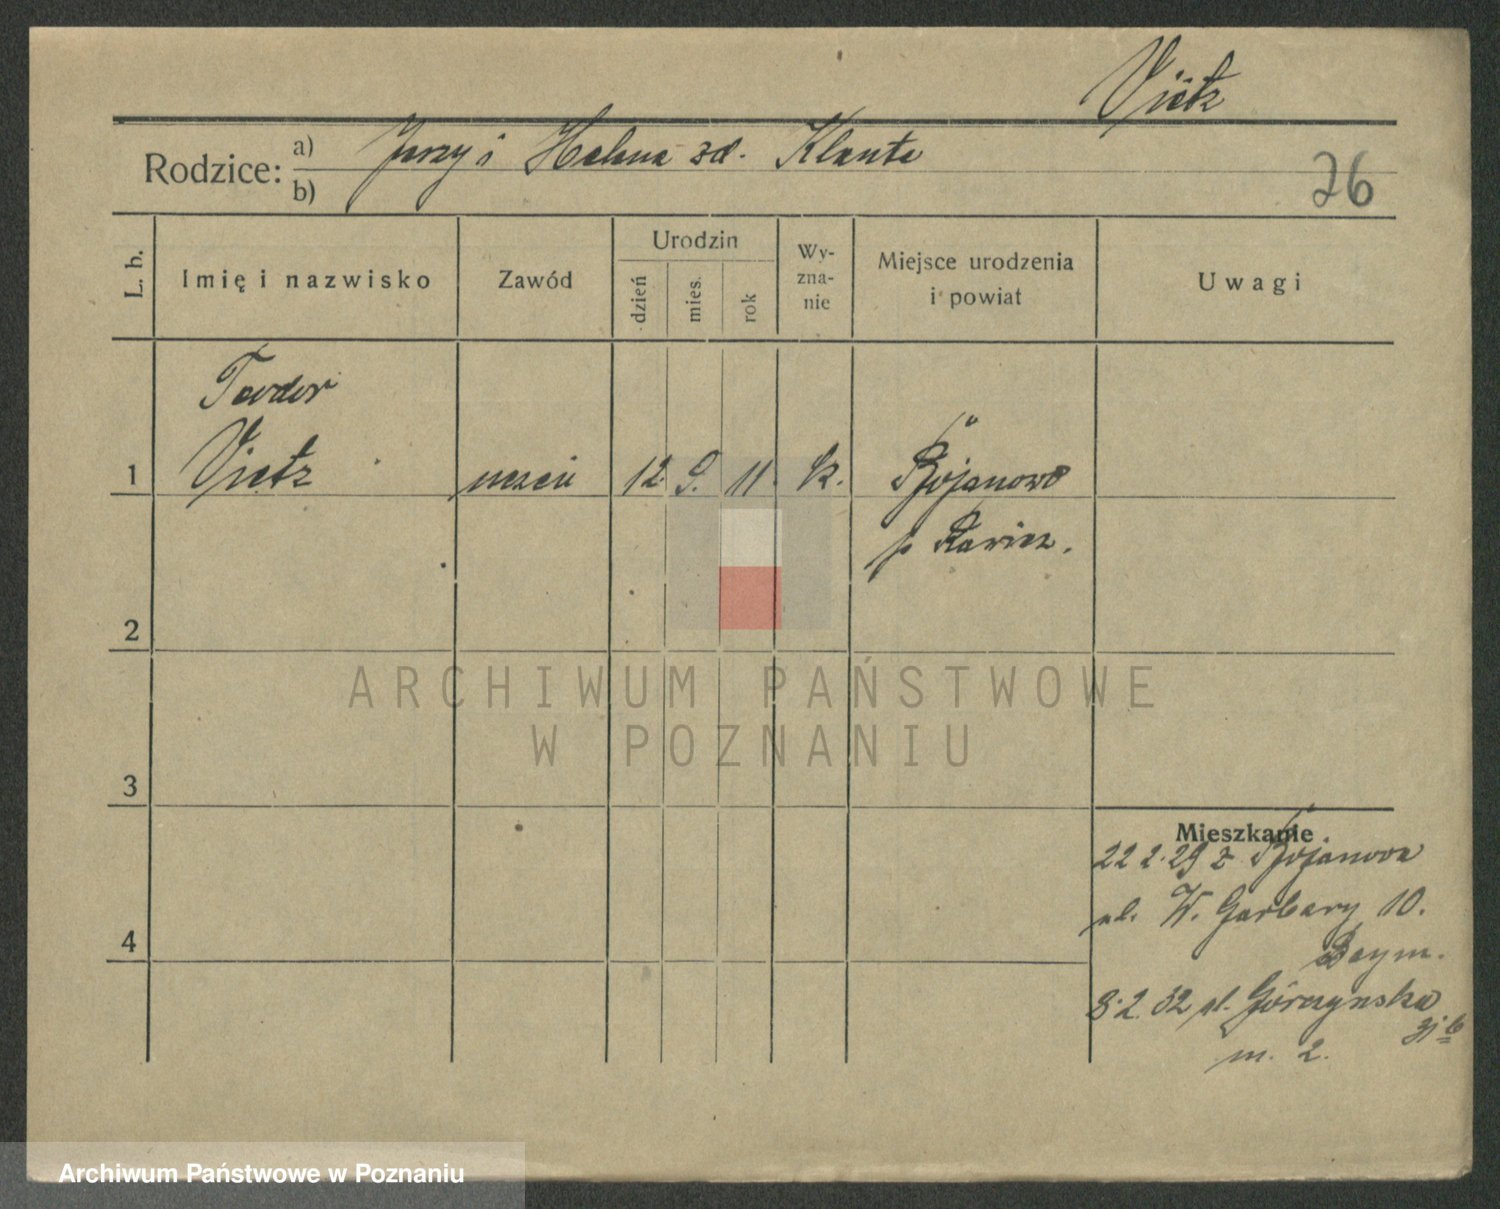 Vietz
Rodzice: a) Jerzy i Helena zd. Klante
b)
26
L. b.
Imię i nazwisko
Zawód
Urodzin
dzień
mies.
rok
Wy-
zna-
nie
Miejsce urodzenia
i powiat
Uwagi
Teodor
1 Vietz uczeń 12. 9. 11. k. Bojanowo
p Rawicz.
2
ARCHIWUM PAŃSTWOWE
W POZNANIU
3
Mieszkanie
22 2. 29 z Bojanowa
ul. W. Garbary 10.
4
8. 2. 32 ul. Górczyńska
m. 2.
Archiwum Państwowe w Poznaniu